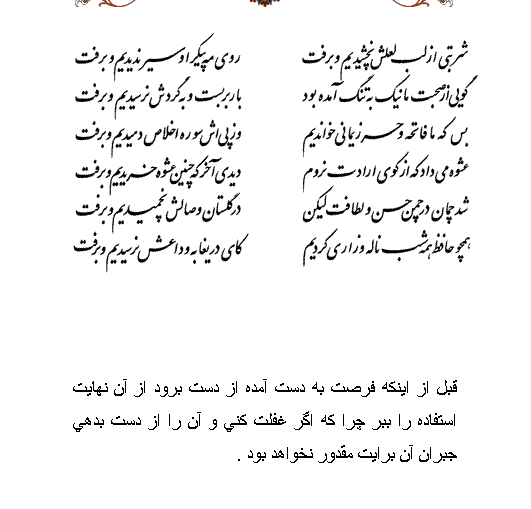 شربتی از لب لعلش نچشیدیم و برفت
روی مه پیکر او سیر ندیدیم و برفت
گویی از صحبت ما نیک به تنگ آمده بود
بار بربست و به گردش نرسیدیم و برفت
بس که ما فاتحه و حرز یمانی خواندیم
وز پی اش سوره اخلاص دمیدیم و برفت
عشوه می داد که از کوی ارادت نروم
دیدی آخر که چنین عشوه خریدیم و برفت
شد چمان در چمن حسن و لطافت لیکن
در گلستان وصالش نچمیدیم و برفت
همچو حافظ همه شب ناله و زاری کردیم
کای دریغا به وداعش نرسیدیم و برفت
قبل از اینکه فرصت به دست آمده از دست برود از آن نهایت
استفاده را ببر چرا که اگر غفلت کني و آن را از دست بدهي
جبران آن برایت مقدور نخواهد بود .